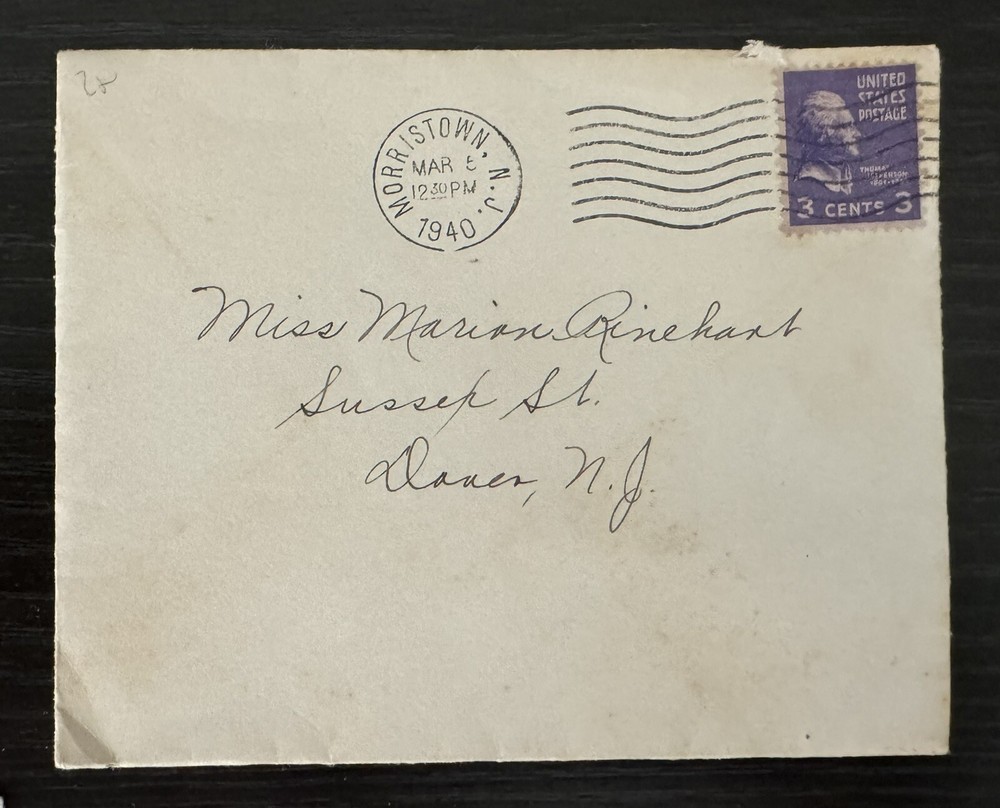 UNITED
STATES
POSTAGE
THOMAS
JEFFERSON
3 CENTS 3
MORRISTOWN, N.J.
MAR 5
12 30 PM
1940
Miss Marion Rinehart
Sussex St.
Dover, N.J.